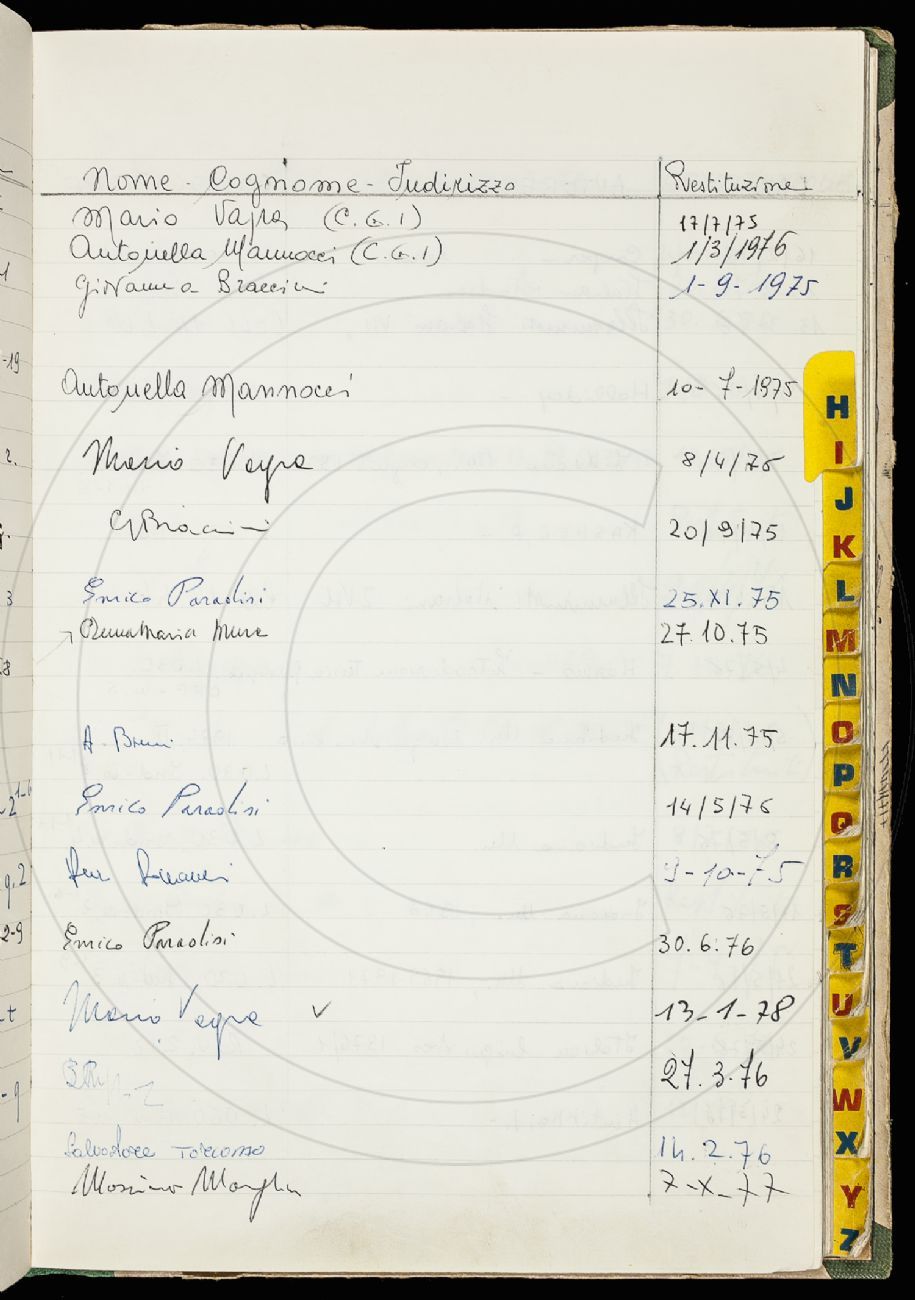 Nome - Cognome - Indirizzo Restituzione
Mario Vayra (C.G.I) 17/7/75
Antonella Mannocci (C.G.I) 1/3/1976
Giovanna Braccini 1-9-1975
Antonella Mannocci 10-7-1975
Mario Vayra 8/4/76
G Braccini 20/9/75
Enrico Paradisi 25.XI.75
Maria 27.10.75
A. Bruni 17.11.75
Enrico Paradisi 14/5/76
9-10-75
Enrico Paradisi 30.6.76
Mario Vayra ✓ 13-1-78
27.3.76
Salvatore 14.2.76
Massimo 7-X-77
H
I
J
K
L
M
N
O
P
Q
R
S
T
U
V
W
X
Y
Z